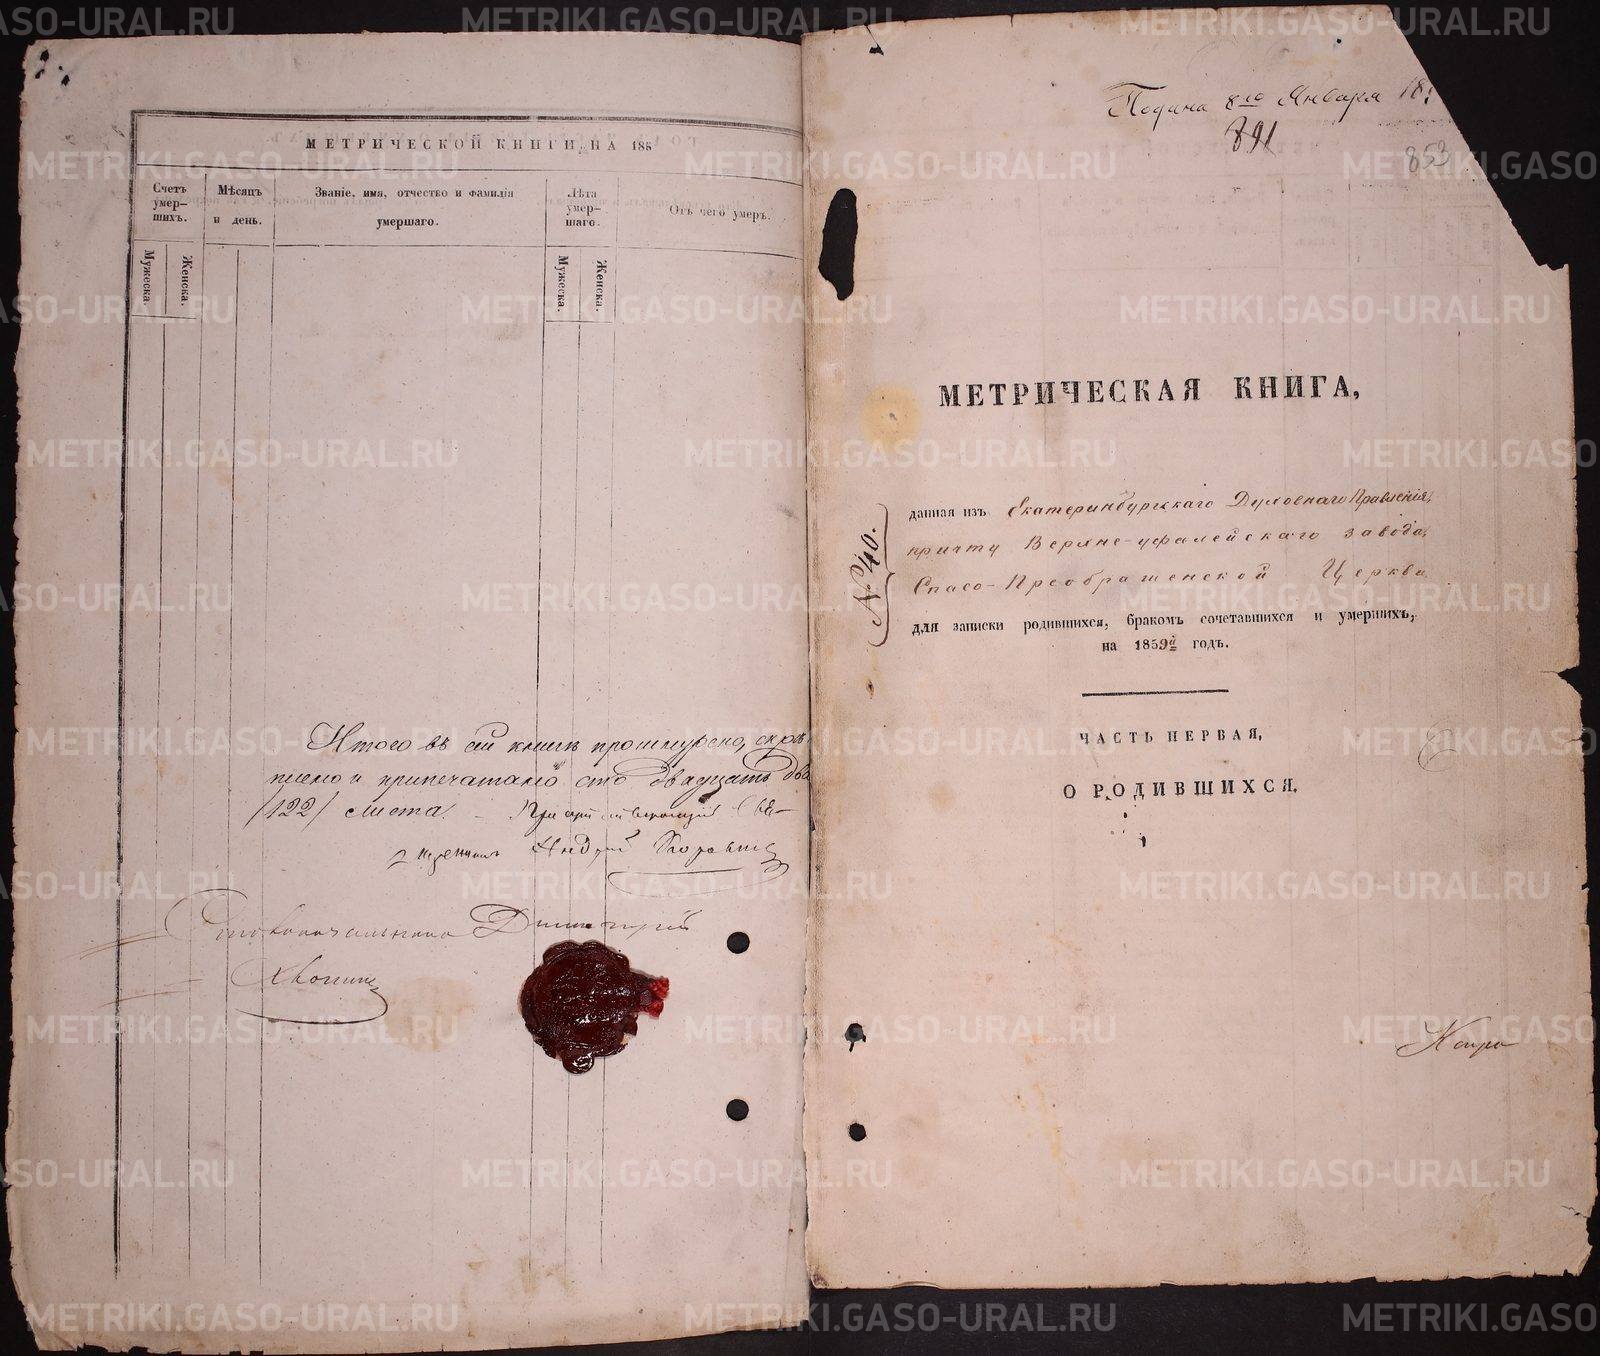 МЕТРИЧЕСКОЙ КНИГИ НА 185
Счетъ умер-шихъ.
Мѣсяцъ и день.
Званіе, имя, отчество и фамилія умершаго.
Лѣта умер-шаго.
Отъ чего умеръ.
Мужеска.
Женска.
Мужеска.
Женска.
Итого въ сей книгѣ прошнурено, скрѣ
плено и припечатано сто двадцать два
/122/ листа.
Андрей
Столоначальникъ Димитрій
Подана 8го Января 18
891
853
МЕТРИЧЕСКАЯ КНИГА,
№ 40.
данная изъ Екатеринбургскаго Духовнаго Правленія,
причту Верхне-уфалейскаго завода,
Спасо-Преображенской Церкви
для записки родившихся, бракомъ сочетавшихся и умершихъ,
на 1859й годъ.
ЧАСТЬ ПЕРВАЯ,
О РОДИВШИХСЯ.
METRIKI.GASO-URAL.RU